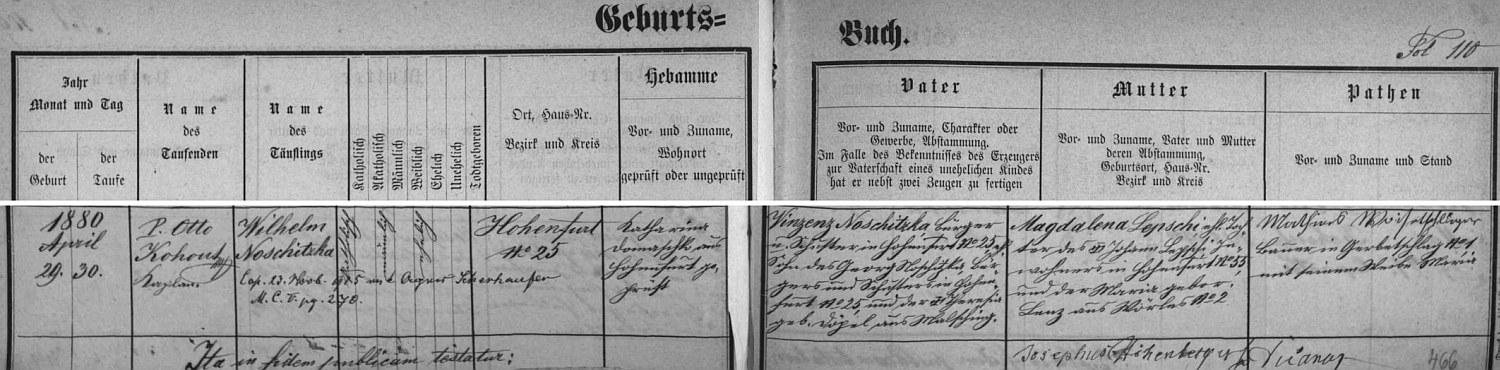 Geburts=
Buch.
Fol 110
Jahr
Monat und Tag
der
Geburt
der
Taufe
Name
des
Taufenden
Name
des
Täuflings
Katholisch
Akatholisch
Männlich
Weiblich
Ehelich
Unehelich
Todtgeboren
Ort, Haus-Nr.
Bezirk und Kreis
Hebamme
Vor- und Zuname,
Wohnort
geprüft oder ungeprüft
Vater
Vor- und Zuname, Charakter oder
Gewerbe, Abstammung.
Im Falle des Bekenntnisses des Erzeugers
zur Vaterschaft eines unehelichen Kindes
hat er nebst zwei Zeugen zu fertigen
Mutter
Vor- und Zuname, Vater und Mutter
deren Abstammung,
Geburtsort, Haus-Nr.
Bezirk und Kreis
Pathen
Vor- und Zuname und Stand
1880
April
29. 30.
P. Otto
Kohout
Kaplan
Wilhelm
Noschitzka
Cop. 23. Novb. 1915
M. C. V. pg. 270.
katholisch
männlich
ehelich
Hohenfurt
No 25
Katharina
Domaschk, aus
Hohenfurt ge-
prüft
Vinzenz Noschitzka Bürger
u. Schuster in Hohenfurt No 25, eh.
Sohn des Georg Noschitzka Bür-
gers und Schusters in Hohen-
furt No 25 und der Theresia
geb. Döpel aus Malsching.
Magdalena Lepschi ehl. Toch-
ter des Johann Lepschi In-
wohners in Hohenfurt No 55,
und der Maria gebor.
Lenz aus Wörles No 2
Mathias
Bauer in Gerbetschlag No 1
mit seinem Weibe Maria
Ita in fidem publicam testatur:
Josephus
466